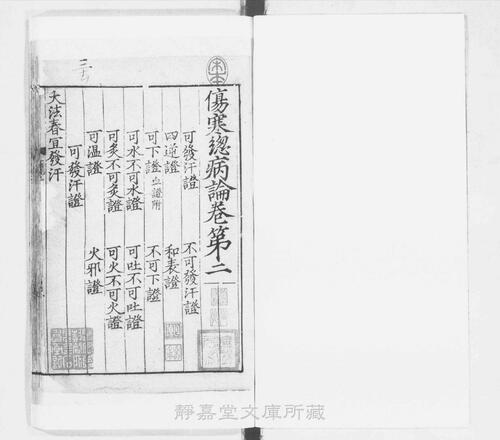 傷寒總病論卷第二
可發汗證 不可發汗證
四逆證 和表證
可下證血證附 不可下證
可水不可水證 可吐不可吐證
可灸不可灸證 可火不可火證
可溫證 火邪證
可發汗證
大法春宜發汗
靜嘉堂文庫所藏